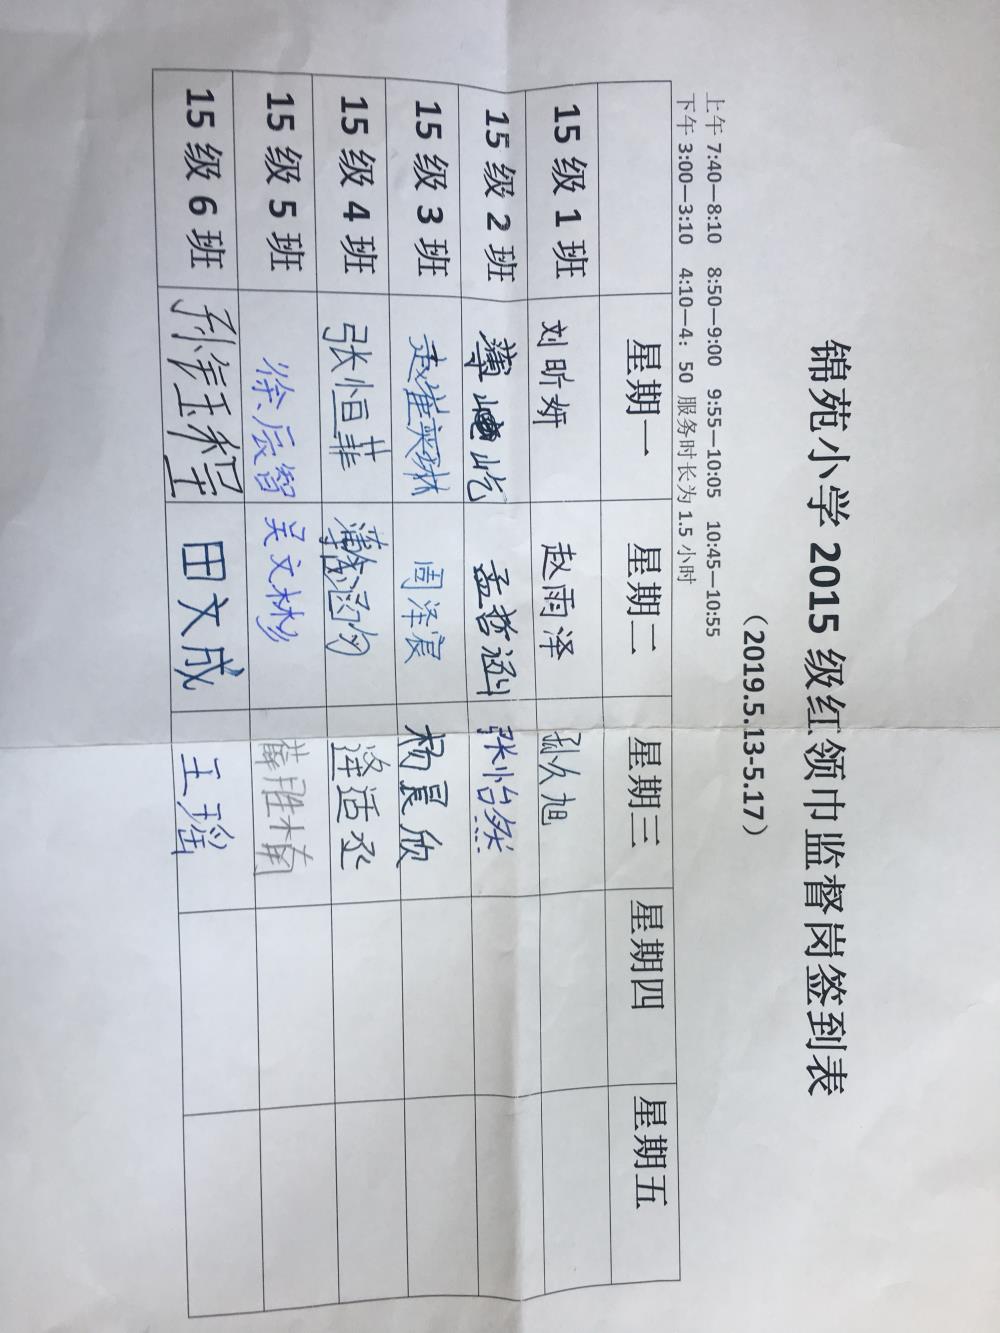 锦苑小学 2015 级红领巾监督岗签到表
（2019.5.13-5.17）
上午 7:40—8:10 8:50—9:00 9:55—10:05 10:45—10:55
下午 3:00—3:10 4:10—4：50 服务时长为 1.5 小时
星期一 星期二 星期三 星期四 星期五
15 级 1 班 刘昕妍 赵雨泽 孙久旭
15 级 2 班 屹 孟哲涵 张怡然
15 级 3 班 周泽宸 杨晨欣
15 级 4 班 张恒菲 逄适丞
15 级 5 班 徐辰智 吴文彬 薛胜楠
15 级 6 班 田文成 王瑶